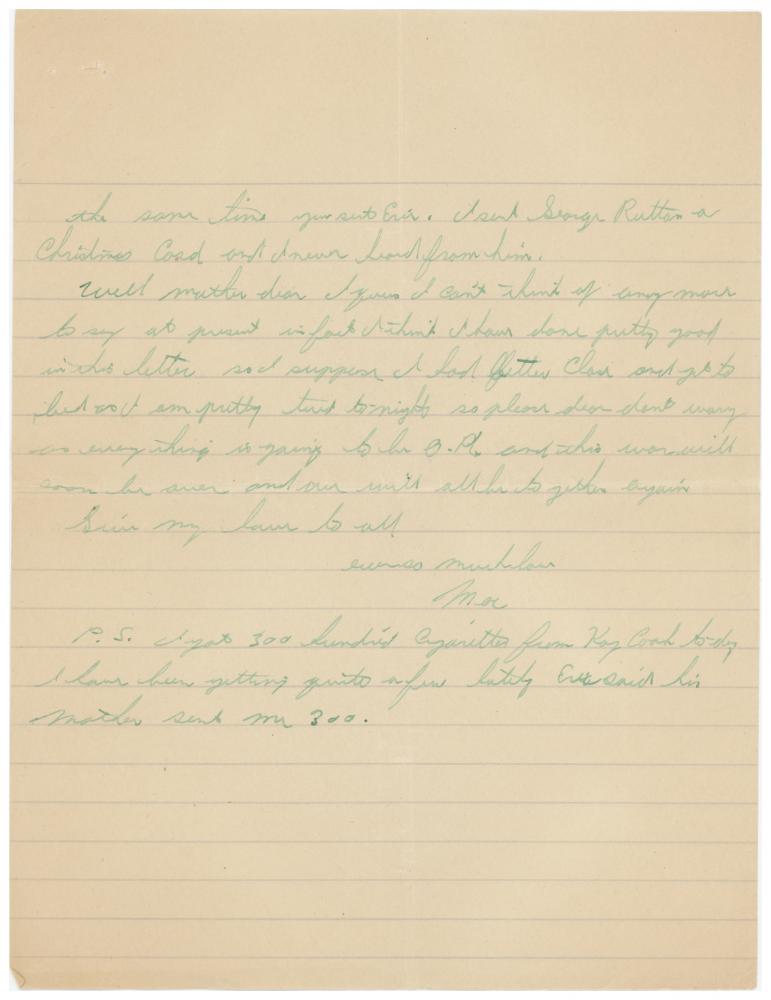 the same time you sent Eric. I sent George Ruttan a
Christmas Card and I never heard from him.
Well mother dear I guess I can't think of any more
to say at present in fact I think I have done pretty good
in this letter so I suppose I had better close and get to
bed as I am pretty tired to-night so please dear dont worry
as everything is going to be O.K. and this war will
soon be over and we will all be together again
Give my love to all
ever so much love
P.S. I got 300 hundred cigarettes from Kay Cook to-day
I have been getting quite a few lately Eric said his
mother sent me 300.